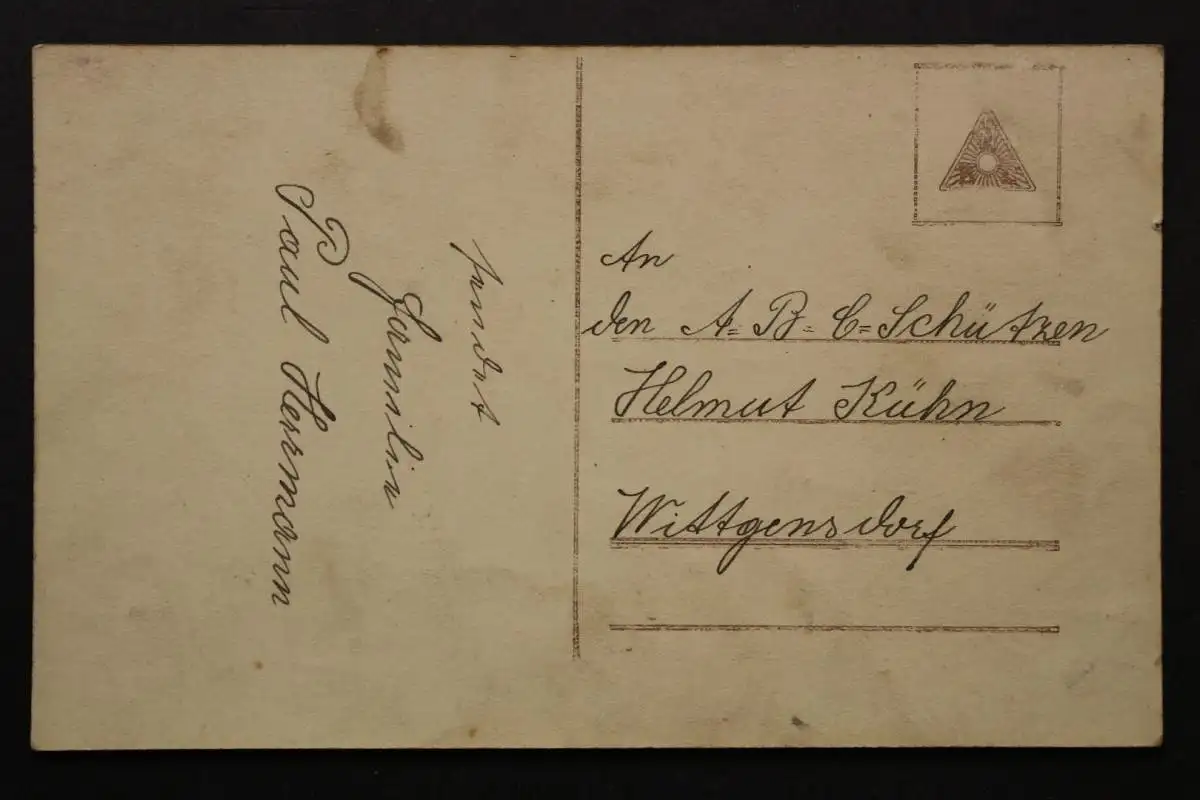 sendet
Familie
Paul Hermann
An
den A=B=C=Schützen
Helmut Kühn
Wittgensdorf